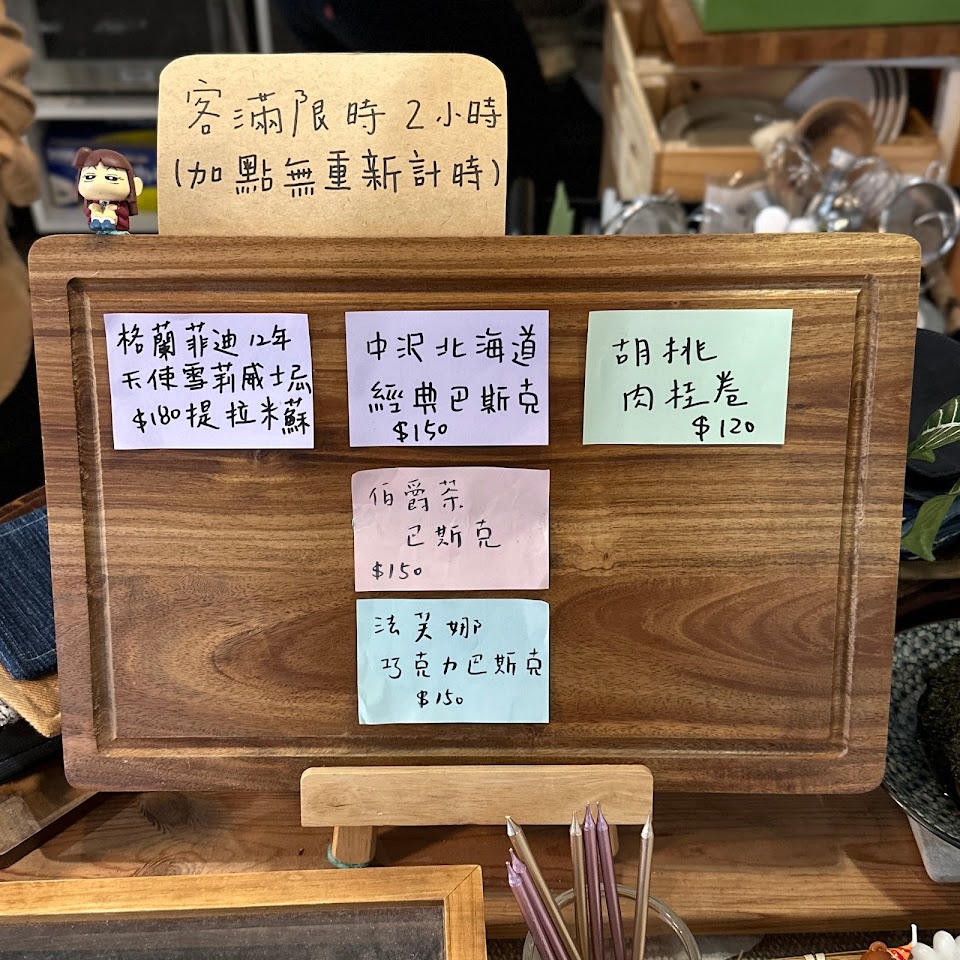 客滿限時2小時
(加點無重新計時)
格蘭菲迪12年
天使雪莉威士忌
$180提拉米蘇
中沢北海道
經典巴斯克
$150
胡桃
肉桂卷
$120
伯爵茶
巴斯克
$150
法芙娜
巧克力巴斯克
$150